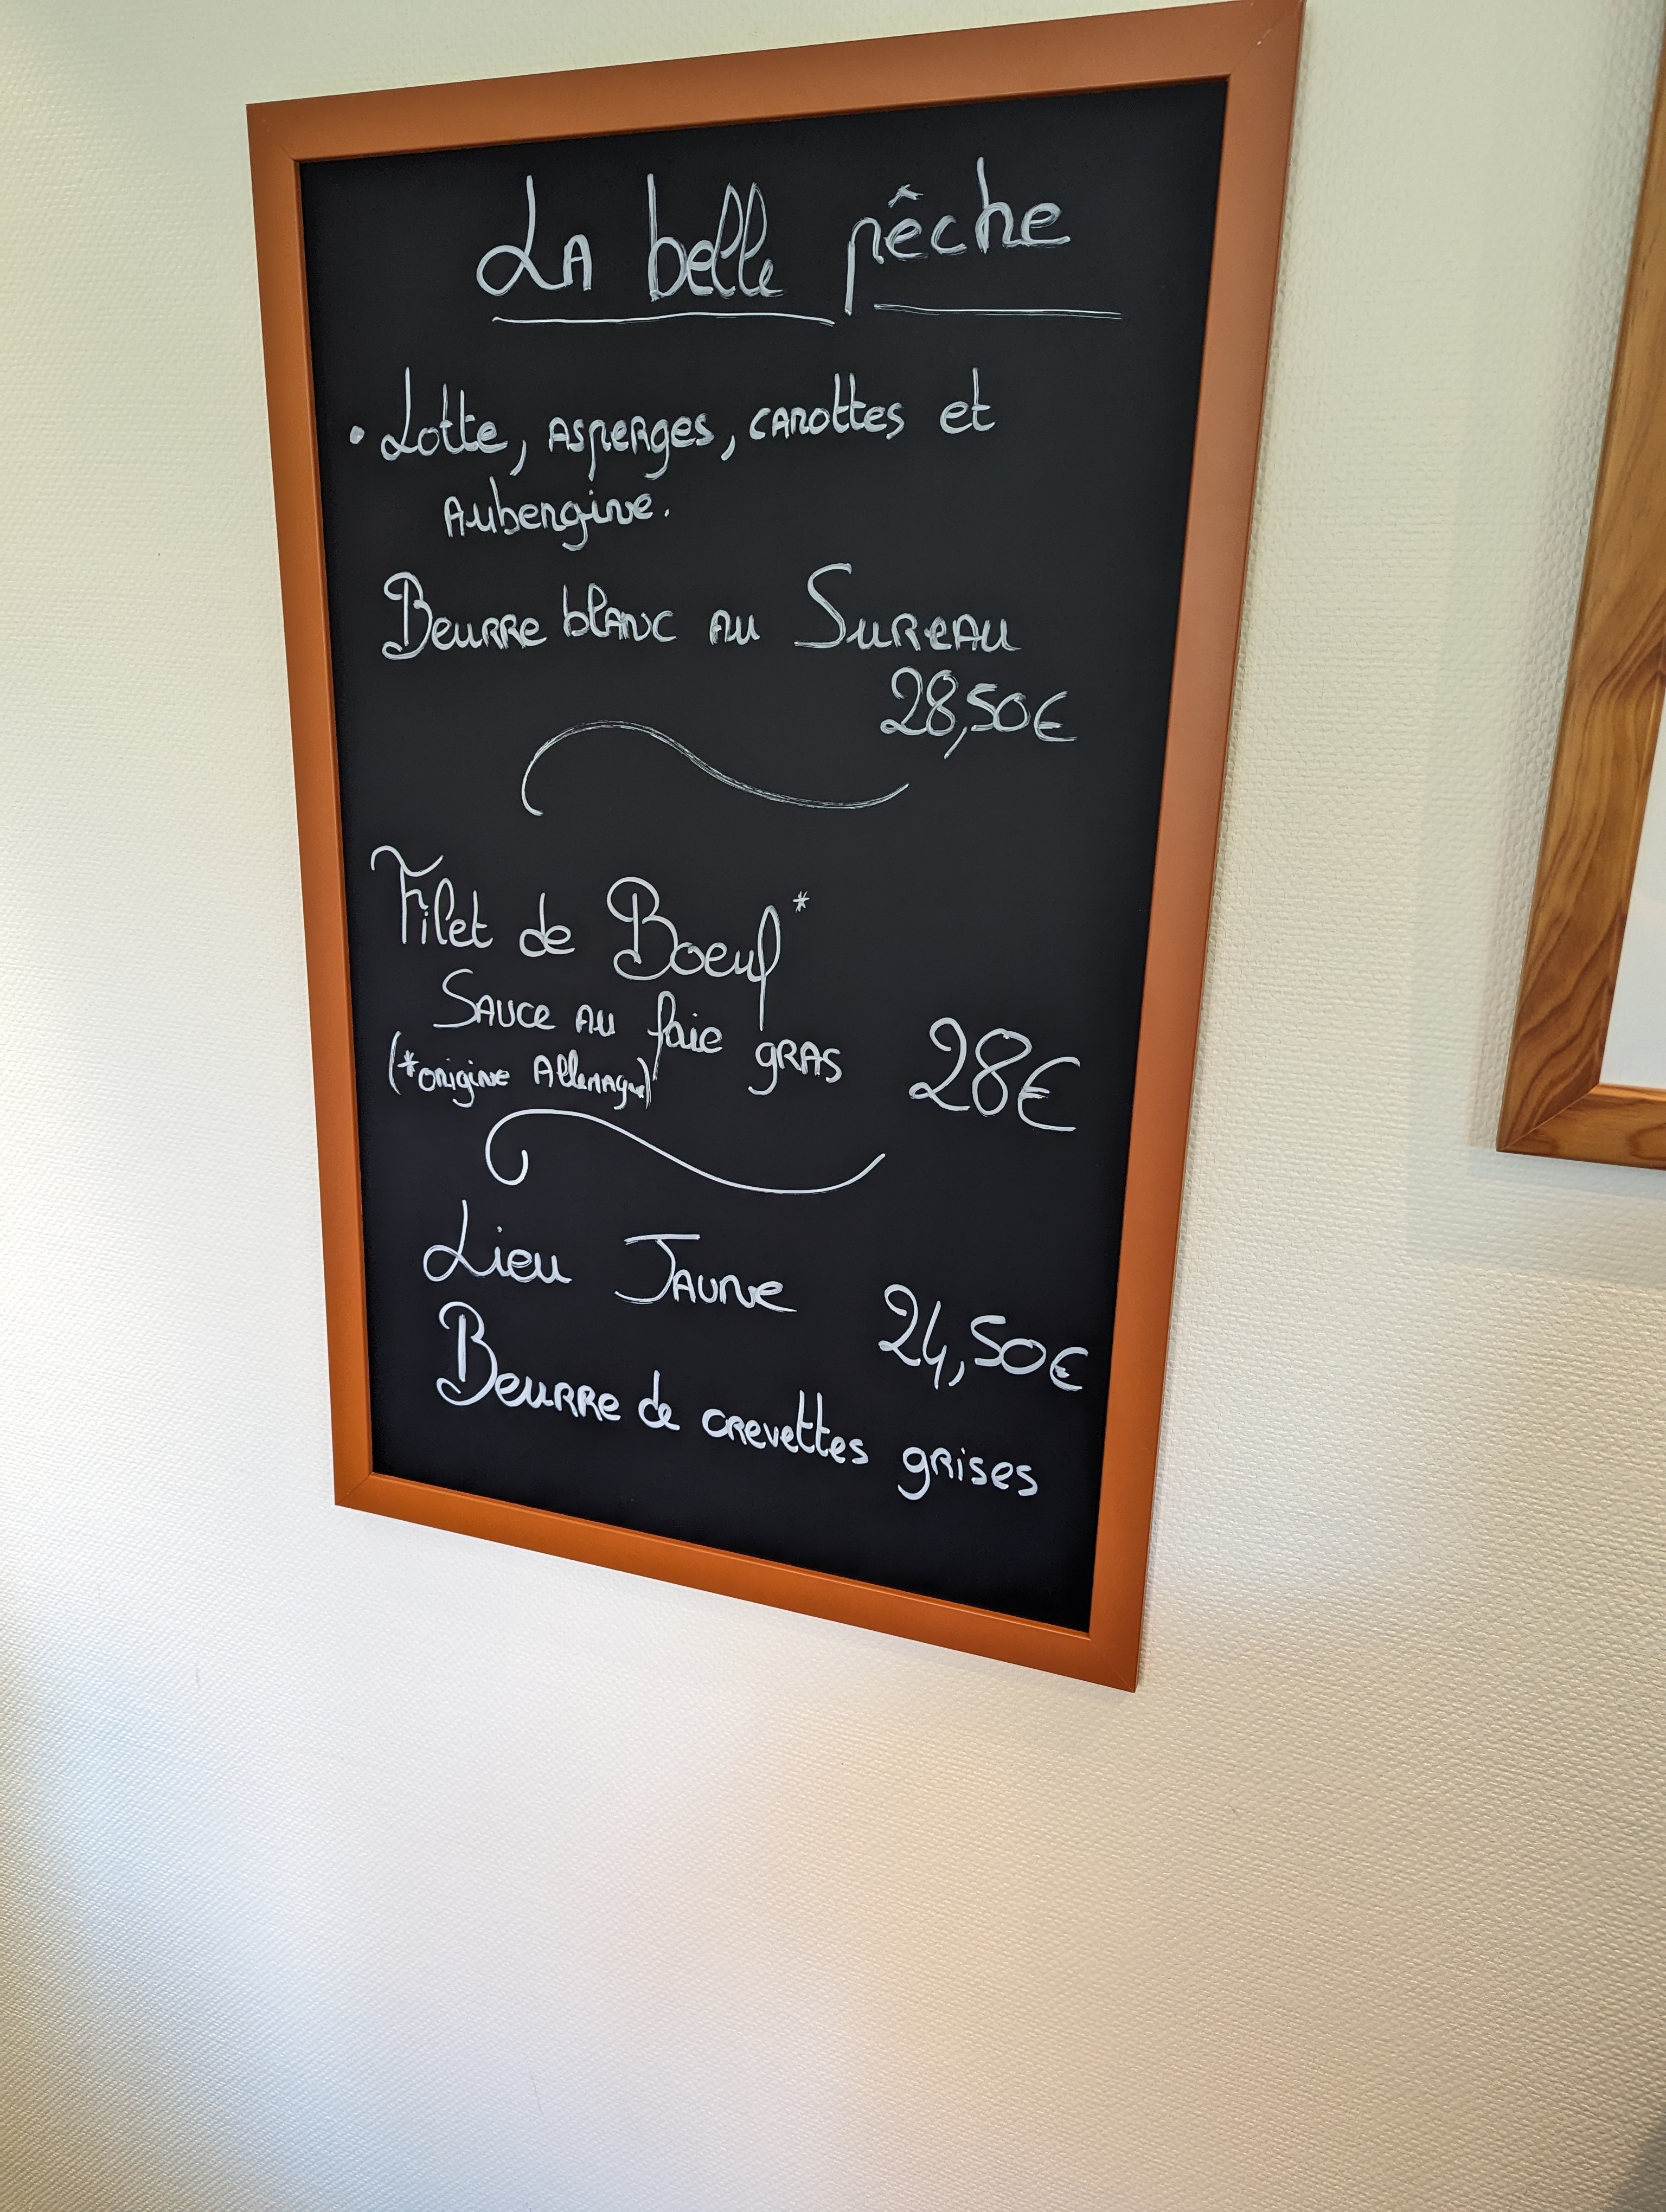 LA belle pêche
• Lotte, asperges, carottes et
Aubergine.
Beurre blanc au Sureau
28,50€
Filet de Boeuf*
Sauce au foie gras 28€
(*origine Allemagne)
Lieu Jaune 24,50€
Beurre de crevettes grises